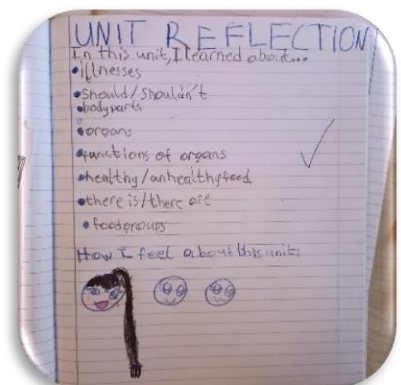 UNIT REFLECTION
In this unit, I learned about...
•illnesses
•should/shouldn't
•bodyparts
•organs
•functions of organs
•healthy/unhealthyfood
•there is/there are
•foodgroups
How I feel about this unit: